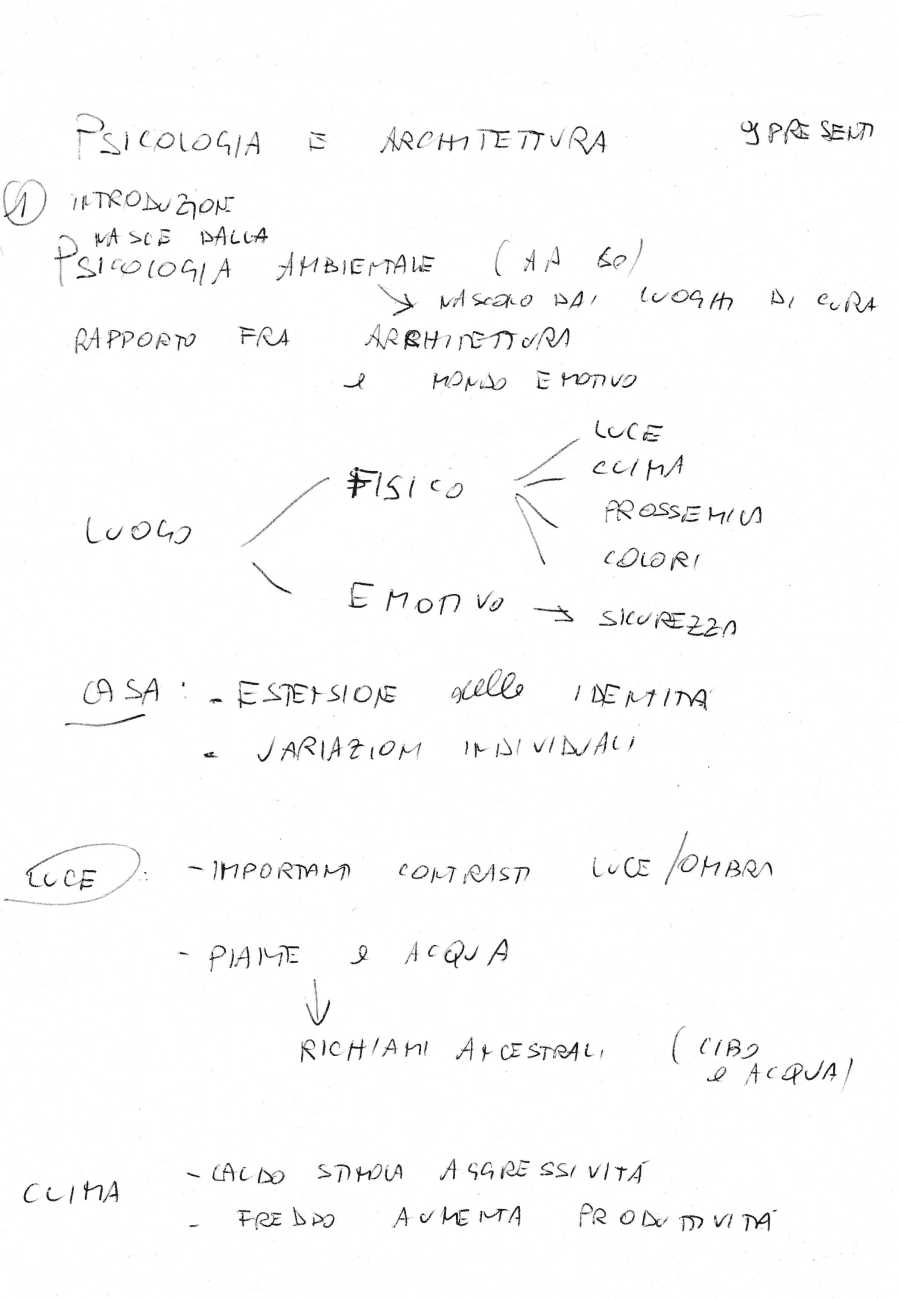 PSICOLOGIA E ARCHITETTURA 9 PRESENTI
1 INTRODUZIONE
NASCE DALLA
PSICOLOGIA AMBIENTALE (AA 60)
→ NASCONO DAI LUOGHI DI CURA
RAPPORTO FRA ARCHITETTURA
e MONDO EMOTIVO
LUCE
FISICO
CLIMA
PROSSEMICA
LUOGO
COLORI
EMOTIVO → SICUREZZA
CASA: - ESTENSIONE delle IDENTITÀ
- VARIAZIONI INDIVIDUALI
LUCE: - IMPORTANTI CONTRASTI LUCE/OMBRA
- PIANTE e ACQUA
↓
RICHIAMI ANCESTRALI (CIBO
e ACQUA)
CLIMA
- CALDO STIMOLA AGGRESSIVITÁ
- FREDDO AUMENTA PRODUTTIVITÁ